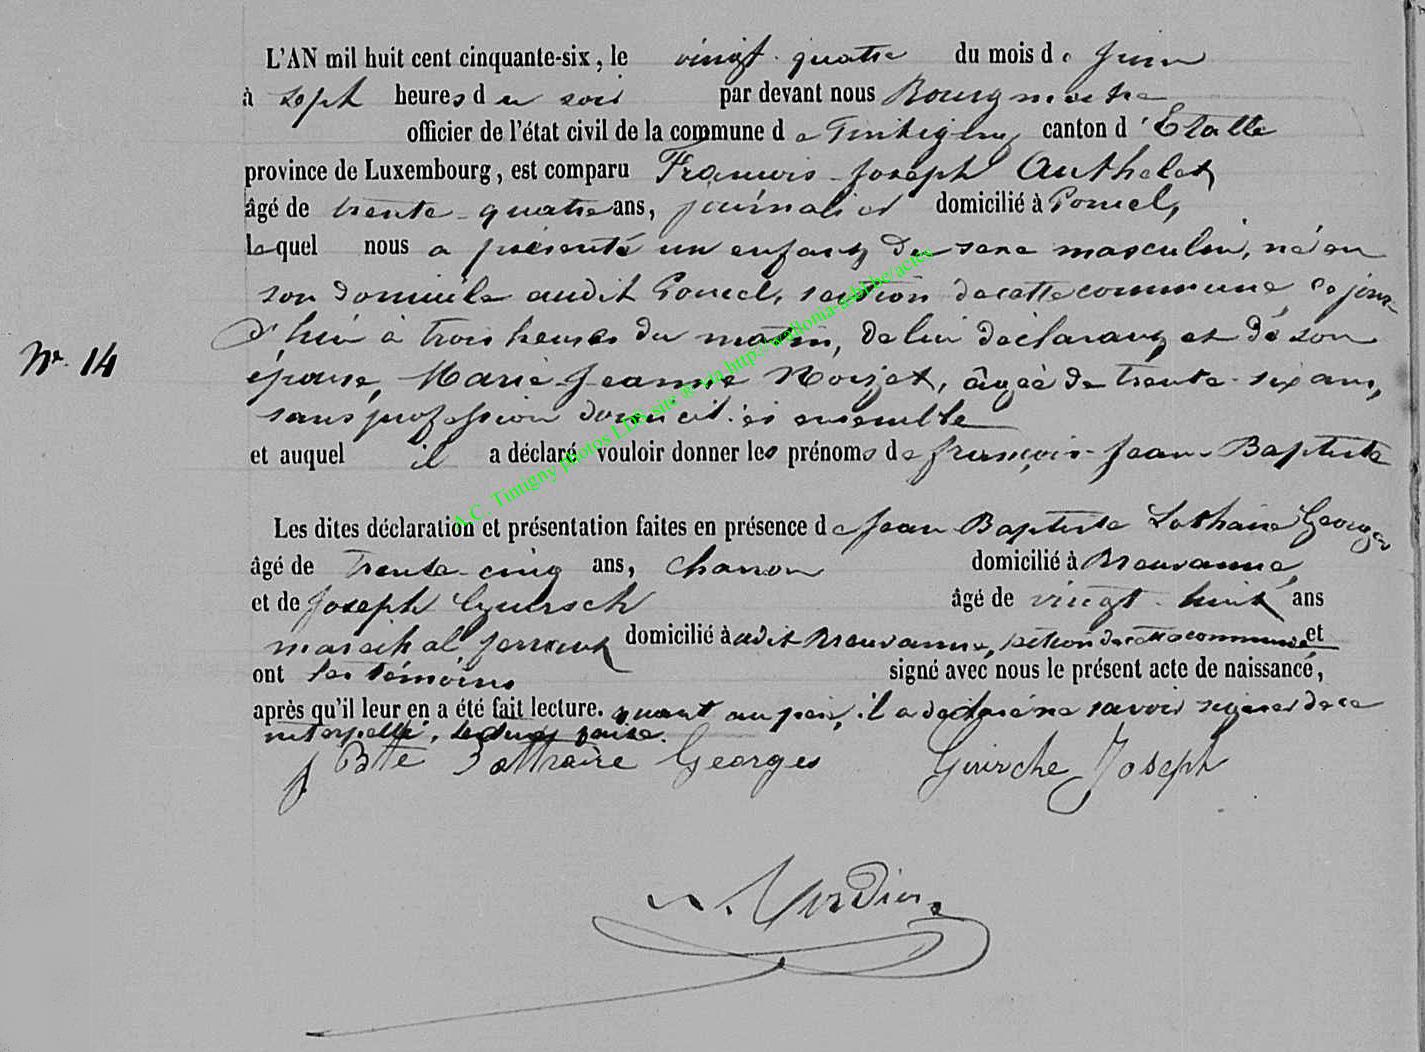 L'AN mil huit cent cinquante-six, le vingt-quatre du mois de Juin
à sept heures du soir par devant nous Bourgmestre
officier de l'état civil de la commune de Tintigny, canton d'Etalle
province de Luxembourg, est comparu François-Joseph Authelet
âgé de trente-quatre ans, journalier domicilié à Poncel,
lequel nous a présenté un enfant du sexe masculin, né en
son domicile audit Poncel, section de cette commune ce jour-
d'hui à trois heures du matin, de lui déclarant et de son
Nr. 14
épouse, Marie-Jeanne Noizet, âgée de trente-six ans,
sans profession domiciliés ensemble
et auquel il a déclaré vouloir donner les prénoms de françois-Jean-Baptiste
Les dites déclaration et présentation faites en présence de Jean Baptiste Lothaire Georges
âgé de trente-cinq ans, charron domicilié à Breuvanne,
et de Joseph âgé de vingt-huit ans
maréchal ferrant domicilié audit Breuvanne, section de cette commune et
ont les témoins signé avec nous le présent acte de naissance,
après qu'il leur en a été fait lecture. quant au père, il a déclaré ne savoir signer de ce
interpellé, lecture faite.
J Btte Lothaire Georges Guirche Joseph
A.C. Tintigny photos LDS site ® via http://wallonia-asbl.be/actes